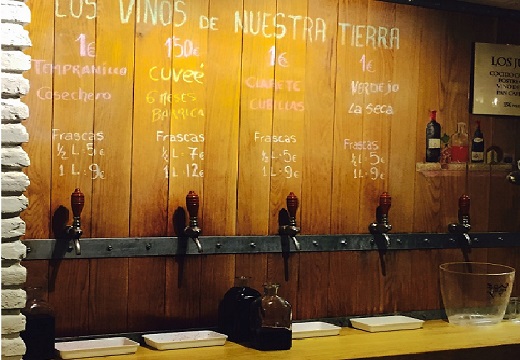 LOS VINOS DE NUESTRA TIERRA
1€
TEMPRANILLO
Cosechero
Frascas
½ L. 5€
1 L. 9€
150€
CUVEÉ
6 MESES
BARRICA
Frascas
½ L. 7€
1 L. 12€
1€
CLARETE
CUBILLAS
Frascas
½ L. 5€
1 L. 9€
1€
VERDEJO
La Seca
Frascas
½ L. 5€
1 L. 9€
LOS JU